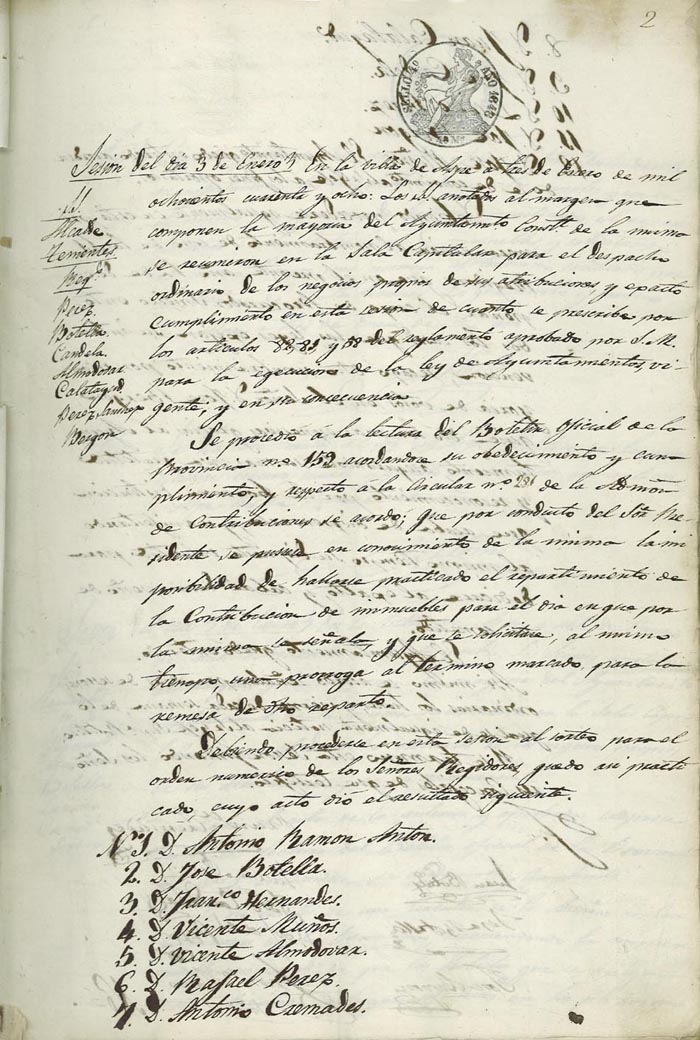 2
SELLO 4º AÑO 1848
40 Ms.
Sesión del dia 3 de Enero
En la villa de Aspe a tres de Enero de mil
ochocientos cuarenta y ocho: Los SS. anotados al margen que
componen la mayoria del Ayuntamto Constl. de la misma
se reunieron en la Sala Capitular para el despacho
ordinario de los negocios propios de sus atribuciones y exacto
cumplimiento en esta sesion de cuanto se prescribe por
los articulos y 88 del reglamento aprobado por S. M.
para la egecucion de la ley de Ayuntamientos, vi-
gente, y en su concecuencia
SS.
Alcalde
Tenientes
Regs.
Perez
Botella
Candela
Almodovar
Calatayud
Perez Sanchez
Se procedió á la lectura del Boletin Oficial de la
Provincia no. 152 acordandose su obedecimiento y cum-
plimiento, y respecto a la Circular no. de la Admon
de Contribuciones se acordo; Que por conducto del Sor. Pre-
sidente se pusiera en conocimiento de la misma la im-
posibilidad de hallarse practicado el repartimiento de
la Contribucion de inmuebles para el dia en que por
la misma se señala, y que se solicitase, al mismo
tiempo, una prorroga al termino marcado para la
remesa de dho reparto.
Debiendo procederse en esta sesion al sorteo para el
orden numerico de los Señores Regidores, quedo asi practi-
cado, cuyo acto dió el resultado siguiente.
No. 1. D. Antonio Ramon Anton.
2. D. Jose Botella.
3. D. Franco Hernandes.
4. D. Vicente Muños.
5. D. Vicente Almodovar.
6. D. Rafael Perez.
7. D. Antonio Cremades.